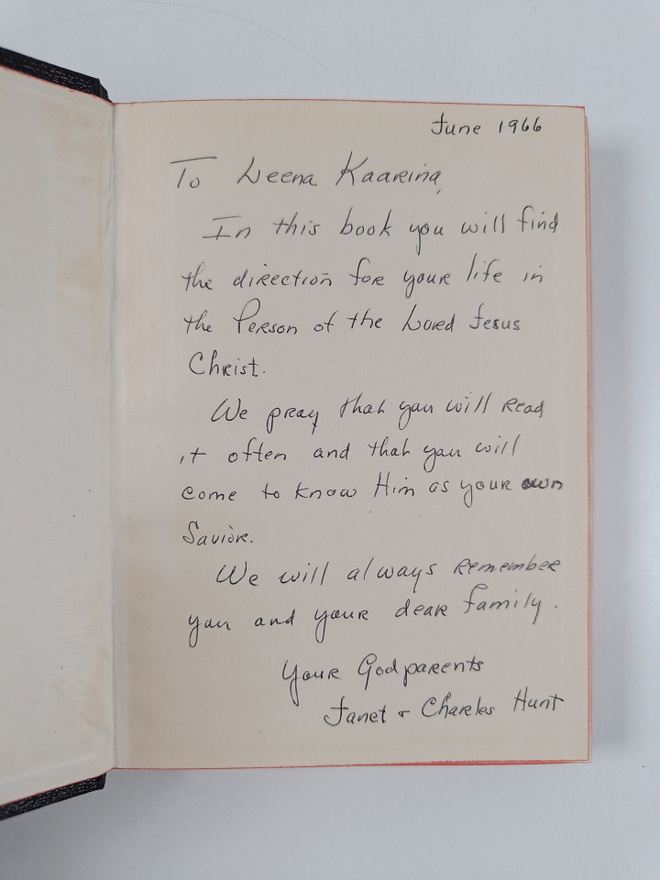 June 1966
To Leena Kaarina,
In this book you will find
the direction for your life in
the Person of the Lord Jesus
Christ.
We pray that you will Read
it often and that you will
come to know Him as your own
Savior.
We will always Remember
you and your dear family.
Your Godparents
Janet & Charles Hunt